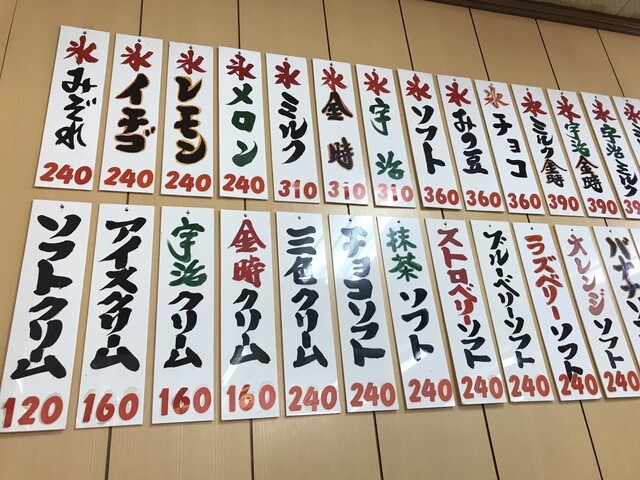 氷みぞれ 240
氷イチゴ 240
氷レモン 240
氷メロン 240
氷ミルク 310
氷金時 310
氷宇治 310
氷ソフト 360
氷みつ豆 360
氷チョコ 360
氷ミルク金時 390
氷宇治金時 390
氷宇治ミルク 390
ソフトクリーム 120
アイスクリーム 160
宇治クリーム 160
金時クリーム 160
三色クリーム 240
チョコソフト 240
抹茶ソフト 240
ストロベリーソフト 240
ブルーベリーソフト 240
ラズベリーソフト 240
オレンジソフト 240
ソフト 240